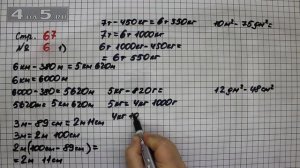 4 на 5.ru
Стр. 67
№ 6 1)
6 км - 380 м = 5 км 620 м
6 км = 6000 м
6000 - 380 = 5620 м
5620 м = 5 км 620 м
3 м - 89 см = 2 м 11 см
3 м = 2 м 100 см
2 м (100 см - 89 см) =
= 2 м 11 см
7т - 450 кг = 6т 550 кг
7т = 6т 1000 кг
6т 1000 кг - 450 кг =
= 6т 550 кг
5 кг - 820 г =
5 кг = 4 кг 1000 г
4 кг 10
10 м² - 75 дм² =
12 дм² - 48 см²